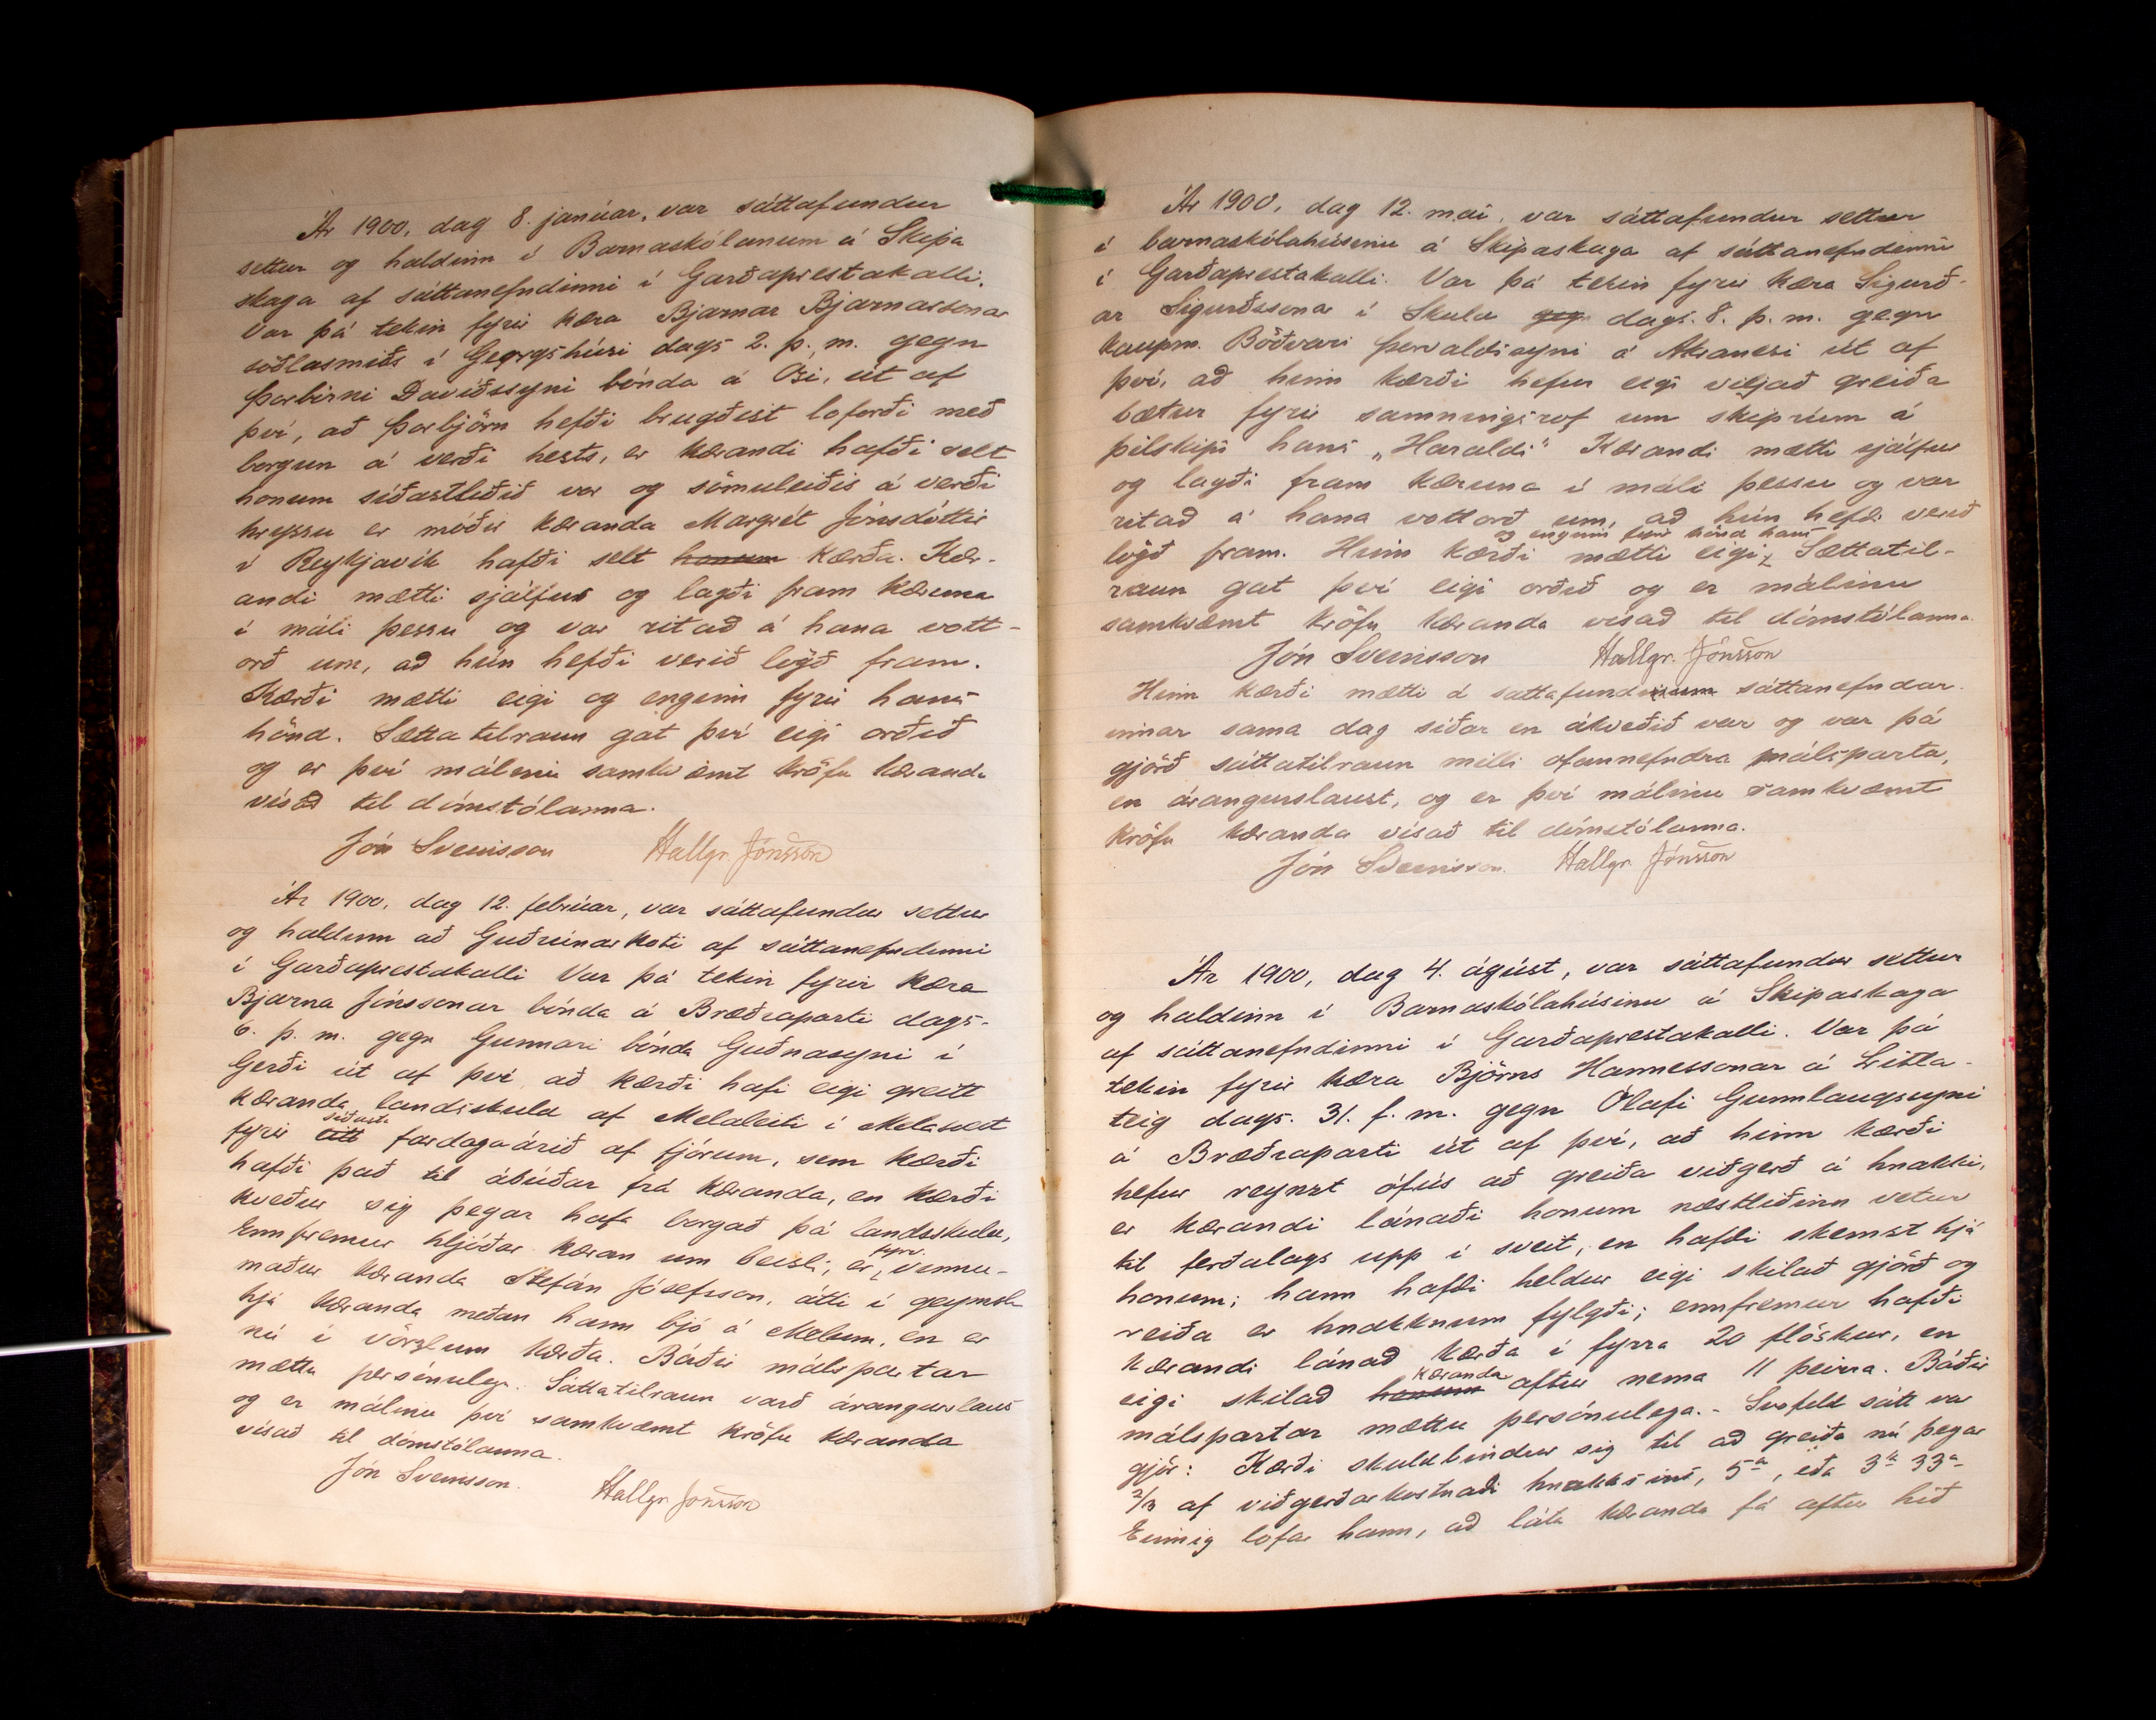 Ár 1900, dag 8. janúar, var sáttafundur
settur og haldinn í Barnaskólanum á Skipa
skaga af sáttanefndinni í Garðaprestakalli.
Var þá tekin fyrir kæra Bjarnar Bjarnarsonar
söðlasmiðs í Georgshúsi dags 2. þ. m. gegn
Þorbirni Davíðssyni bónda á Ósi, út af
því, að Þorbjörn hefði brugðist loforði með
borgun á verði hests, er kærandi hafði selt
honum síðastliðið vor og sömuleiðis á verði
hryssu er móðir kæranda Margrét Jónsdóttir
í Reykjavík hafði selt honum kærða. Kær-
andi mætti sjálfur og lagði fram kæruna
í máli þessu og var ritað á hana vott-
orð um, að hún hefði verið lögð fram.
Kærði mætti eigi og enginn fyrir hans
hönd. Sættatilraun gat því eigi orðið
og er því málinu samkvæmt kröfu kæranda
vísað til dómstólanna.
Jón Sveinsson Hallgr. Jónsson
Ár 1900, dag 12. febrúar, var sáttafundur settur
og haldinn að Guðrúnarkoti af sáttanefndinni
í Garðaprestakalli Var þá tekin fyrir kæra
Bjarna Jónssonar bónda á Bræðraparti dags.
6. þ. m. gegn Gunnari bónda Guðnasyni í
Gerði út af því að kærði hafi eigi greitt
kæranda landskuld af Melaleiti í Melasveit
fyrir eitt síðasta fardagaárið af fjórum, sem kærði
hafði það til ábúðar frá kæranda, en kærði
kveður sig þegar hafa borgað þá landsskuld,
Ennfremur hljóðar kæran um beisli, er fyrv. vinnu-
maður kæranda Stefán Jósefsson, átti í geymslu
hjá kæranda meðan hann bjó á Melum, en er
nú í vörzlum kærða. Báðir málspartar
mættu persónulega. Sáttatilraun varð árangurslaus
og er málinu því samkvæmt kröfu kæranda
vísað til dómstólanna.
Jón Sveinsson. Hallgr Jónsson
Ár 1900, dag 12. maí, var sáttafundur settur
í barnaskólahúsinu á Skipaskaga af sáttanefndinni
í Garðaprestakalli. Var þá tekin fyrir kæra Sigurð-
ar Sigurðssonar í Skuld geg dags. 8. þ. m. gegn
kaupm. Böðvari Þorvaldssyni á Akranesi út af
því, að hinn kærði hefur eigi viljað greiða
bætur fyrir samningsrof um skiprúm á
þilskipi hans „Haraldi“ Kærandi mætti sjálfur
og lagði fram kæruna í máli þessu og var
ritað á hana vottorð um, að hún hefði verið
lögð fram. Hinn kærði mætti eigi og enginn fyrir hönd hans Sættatil-
raun gat því eigi orðið og er málinu
samkvæmt kröfu kæranda vísað til dómstólanna.
Jón Sveinsson Hallgr. Jónsson
Hinn kærði mætti á sáttafundinum sáttanefndar-
innar sama dag síðar en ákveðið var og var þá
gjörð sáttatilraun milli ofannefndra málsparta,
en árangurslaust, og er því málinu samkvæmt
kröfu kæranda vísað til dómstólanna.
Jón Sveinsson. Hallgr Jónsson
Ár 1900, dag 4. ágúst, var sáttafundur settur
og haldinn í Barnaskólahúsinu á Skipaskaga
af sáttanefndinni í Garðaprestakalli. Var þá
tekin fyrir kæra Björns Hannessonar á Litla-
teig dags. 31. f. m. gegn Ólafi Gunnlaugssyni
á Bræðraparti út af því, að hinn kærði
hefur reynzt ófús að greiða viðgerð á hnakki,
er kærandi lánaði honum næstliðinn vetur
til ferðalags upp í sveit, en hafði skemst hjá
honum; hann hafði heldur eigi skilað gjörð og
reiða er hnakknum fylgði; ennfremur hafði
kærandi lánað kærða í fyrra 20 flöskur, en
eigi skilað honum kæranda aftur nema 11 þeirra. Báðir
málspartar mættu persónulega. - Svofeld sátt var
gjör: Kærði skuldbindur sig til að greiða nú þegar
2/3 af viðgerðarkostnaði hnakksins, 5 a, eða 3 k 33 a
Einnig lofar hann, að láta kæranda fá aftur hið